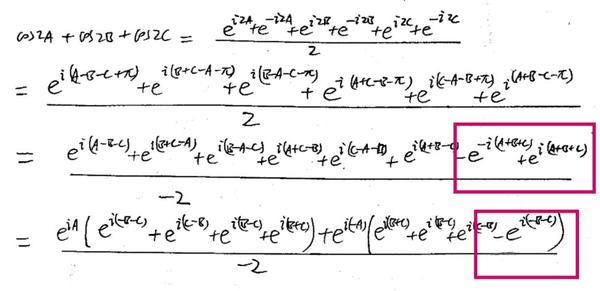 cos2A + cos2B + cos2C = (e^{i2A}+e^{-i2A}+e^{i2B}+e^{-i2B}+e^{i2C}+e^{-i2C})/2
= (e^{i(A-B-C+π)}+e^{i(B+C-A-π)}+e^{i(B-A-C-π)}+e^{i(A+C-B-π)}+e^{i(C-A-B+π)}+e^{i(A+B-C-π)})/2
= (e^{i(A-B-C)}+e^{i(B+C-A)}+e^{i(B-A-C)}+e^{i(A+C-B)}+e^{i(C-A-B)}+e^{i(A+B-C)}-e^{-i(A+B+C)}+e^{i(A+B+C)})/-2
= (e^{iA}(e^{i(-B-C)}+e^{i(C-B)}+e^{i(B-C)}+e^{i(B+C)})+e^{i(-A)}(e^{i(B+C)}+e^{i(B-C)}+e^{i(C-B)}-e^{i(-B-C)}))/-2